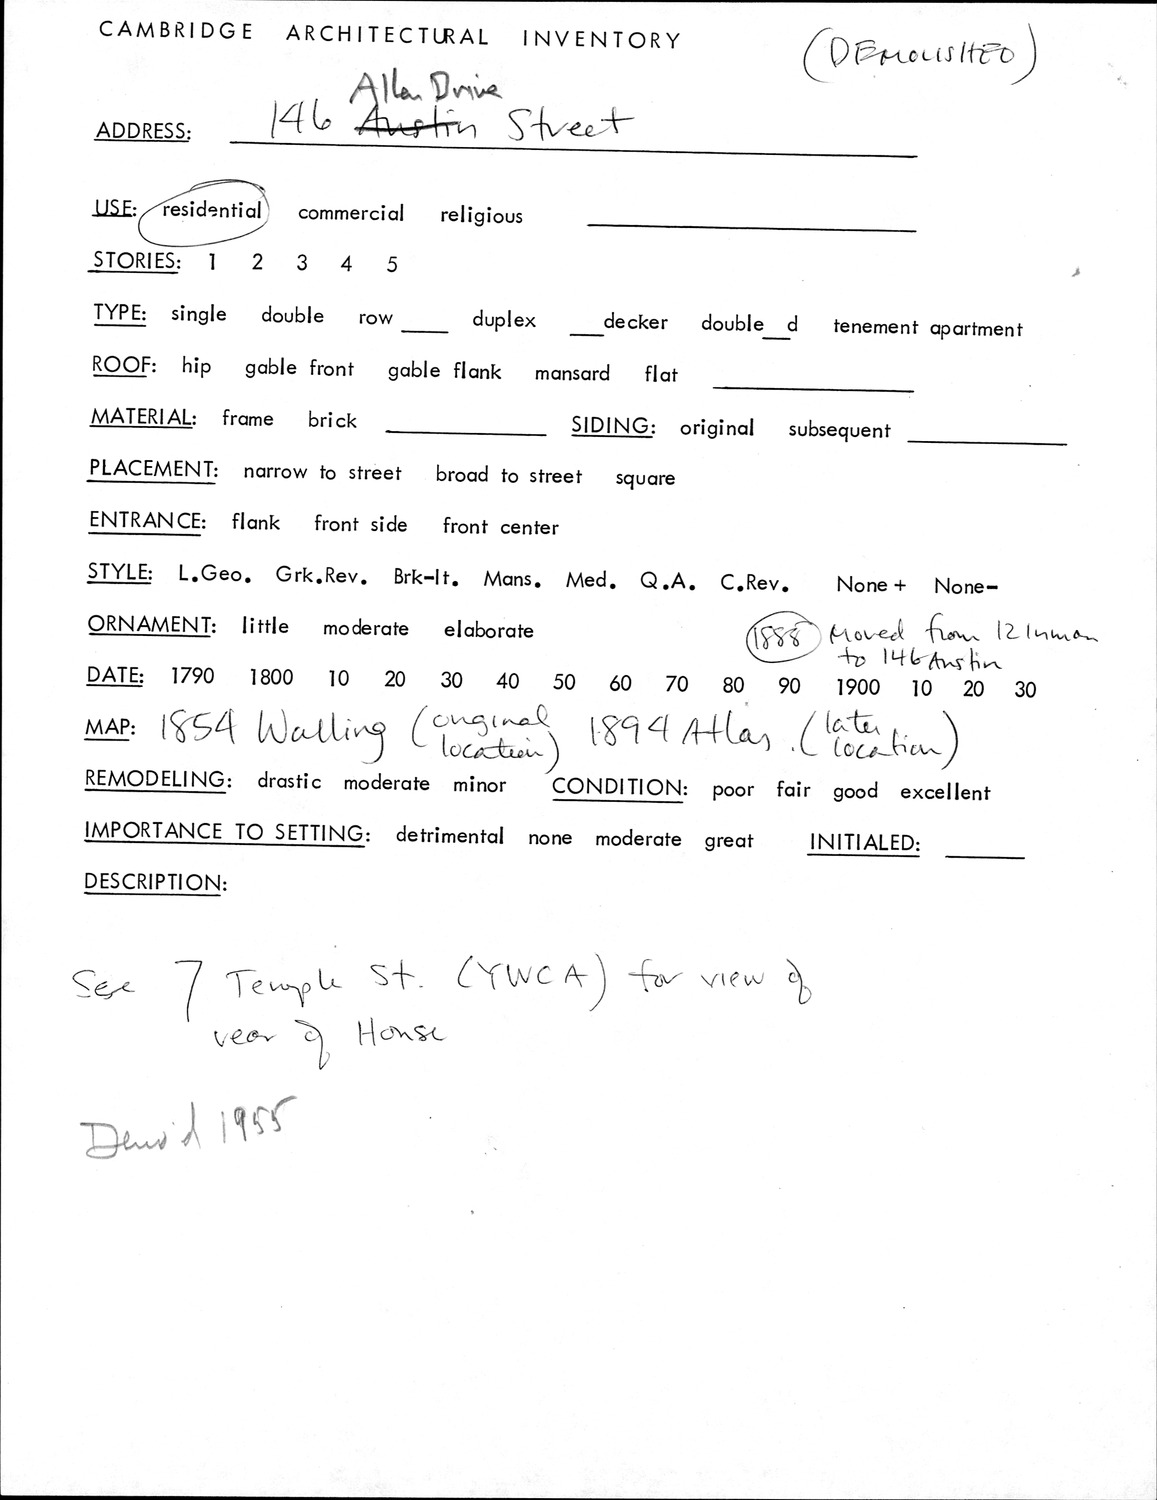 CAMBRIDGE ARCHITECTURAL INVENTORY
(DEMOLISHED)
Allen Drive
ADDRESS: 146 Austin Street
USE: residential commercial religious
STORIES: 1 2 3 4 5
TYPE: single double row ____ duplex ___decker double__d tenement apartment
ROOF: hip gable front gable flank mansard flat
MATERIAL: frame brick ____ SIDING: original subsequent ____
PLACEMENT: narrow to street broad to street square
ENTRANCE: flank front side front center
STYLE: L.Geo. Grk.Rev. Brk-It. Mans. Med. Q.A. C.Rev. None+ None-
ORNAMENT: little moderate elaborate
1888 Moved from 12 Inman
to 146 Austin
DATE: 1790 1800 10 20 30 40 50 60 70 80 90 1900 10 20 30
MAP: 1854 Walling (original location) 1894 Atlas. (later location)
REMODELING: drastic moderate minor CONDITION: poor fair good excellent
IMPORTANCE TO SETTING: detrimental none moderate great INITIALED: ____
DESCRIPTION:
See 7 Temple St. (YWCA) for view of
rear of House
Dem'd 1955